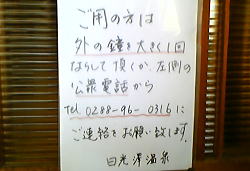 ご用の方は
外の鐘を大きく1回
ならして頂くか、左側の
公衆電話から
Tel 0288-96-0316に
ご連絡をお願い致します.
日光澤温泉